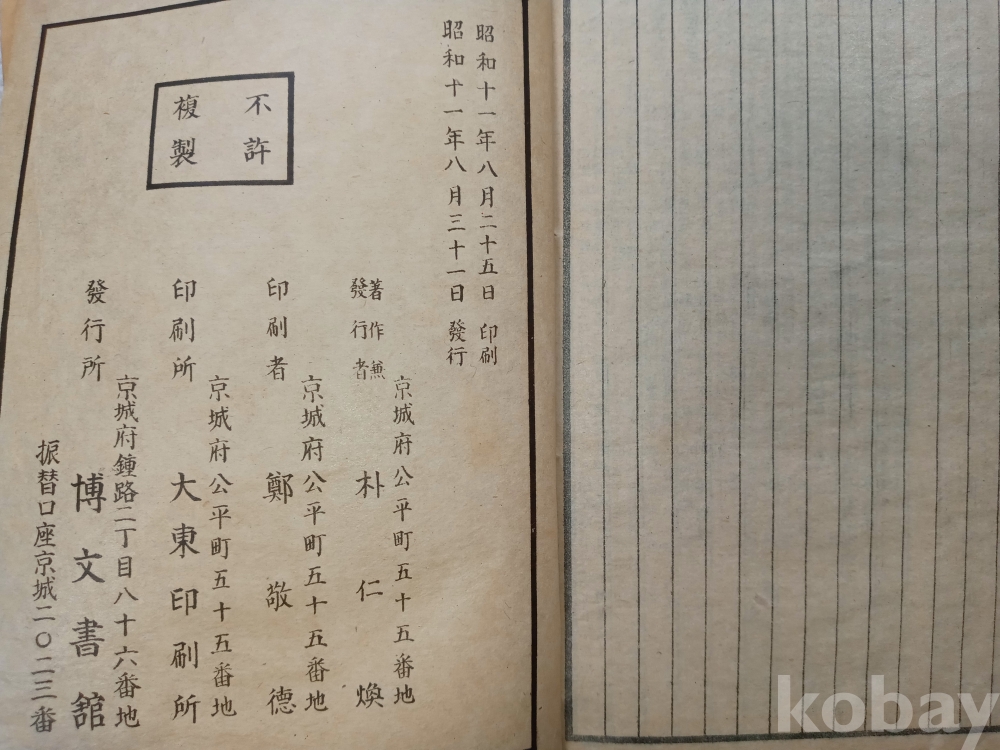 昭和十一年八月二十五日 印刷
昭和十一年八月三十一日 發行
不許
複製
京城府公平町五十五番地
著作兼
發行者 朴仁煥
京城府公平町五十五番地
印刷者 鄭敬德
京城府公平町五十五番地
印刷所 大東印刷所
京城府鍾路二丁目八十六番地
發行所 博文書舘
振替口座京城二〇二三番
kobay